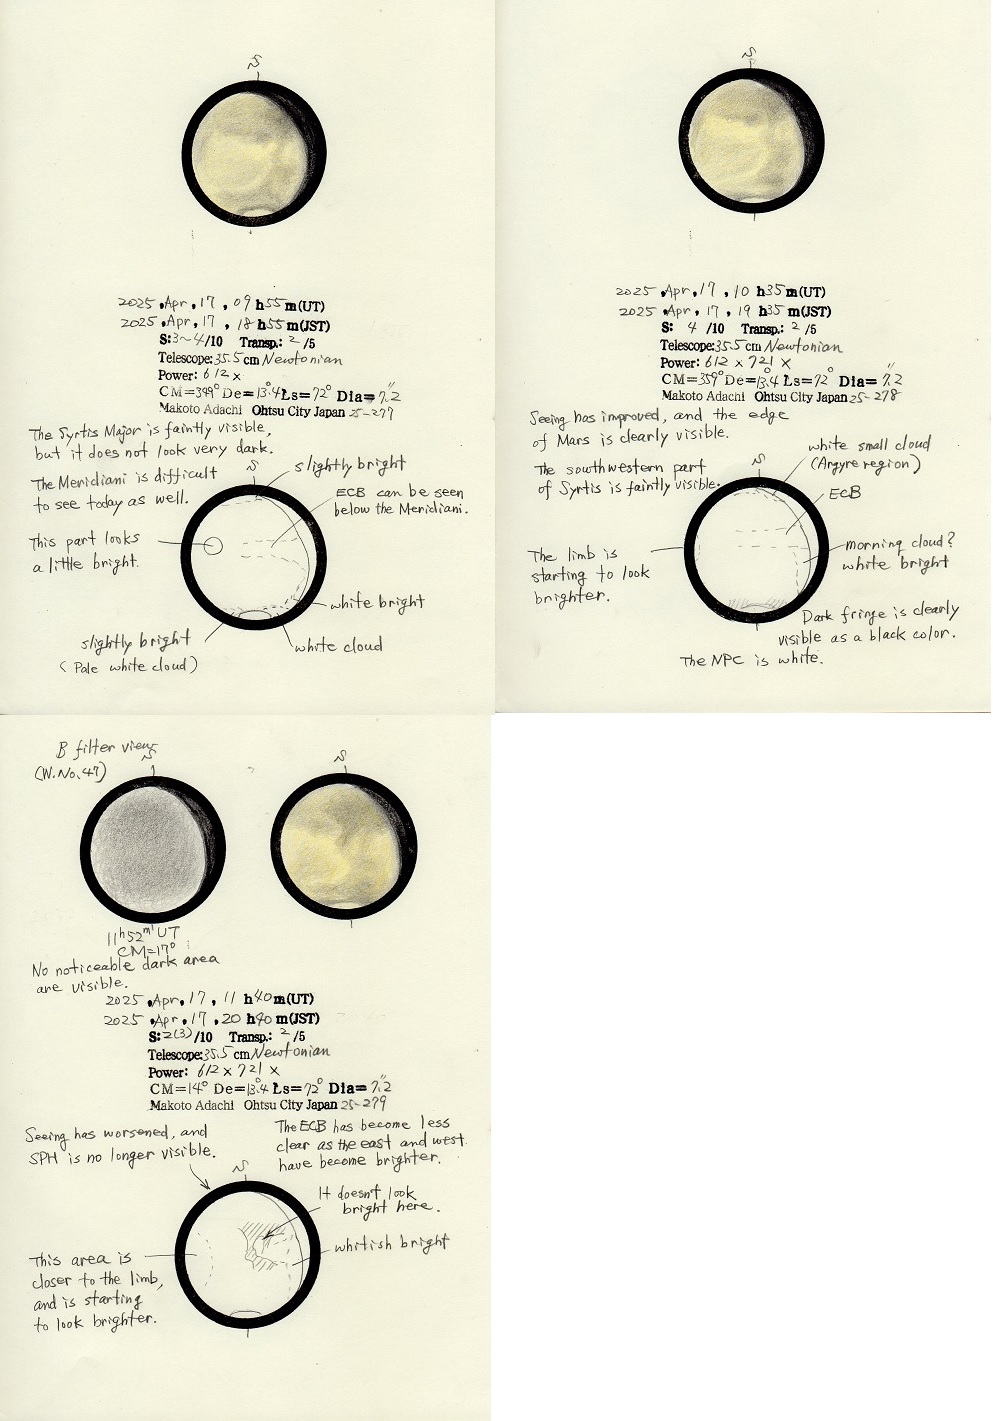 S
2025, Apr, 17, 09 h55m(UT)
2025, Apr, 17, 18 h55m(JST)
S:3~4/10 Transp.: 2/5
Telescope:35.5cm Newtonian
Power: 612 x
CM=349° De=13.4° Ls=72° Dia=7.2"
Makoto Adachi Ohtsu City Japan 25-277
The Syrtis Major is faintly visible,
but it does not look very dark.
The Meridiani is difficult
to see today as well.
S
slightly bright
ECB can be seen
below the Meridiani.
This part looks
a little bright.
white bright
slightly bright
(Pale white cloud)
white cloud
S
2025, Apr, 17, 10 h35m(UT)
2025, Apr, 17, 19 h35m(JST)
S: 4/10 Transp.: 2/5
Telescope:35.5cm Newtonian
Power: 612 x 721 x
CM=359° De=13.4° Ls=72° Dia=7.2"
Makoto Adachi Ohtsu City Japan 25-278
Seeing has improved, and the edge
of Mars is clearly visible.
The southwestern part
of Syrtis is faintly visible.
S
white small cloud
(Argyre region)
ECB
The limb is
starting to look
brighter.
morning cloud?
white bright
Dark fringe is clearly
visible as a black color.
The NPC is white.
B filter view
(W.No.47)
S
S
11h52m UT
CM=17°
No noticeable dark area
are visible.
2025, Apr, 17, 11 h40m(UT)
2025, Apr, 17, 20 h40m(JST)
S:2(3)/10 Transp.: 2/5
Telescope:35.5cm Newtonian
Power: 612 x 721 x
CM=14° De=13.4° Ls=72° Dia=7.2"
Makoto Adachi Ohtsu City Japan 25-279
Seeing has worsened, and
SPH is no longer visible.
The ECB has become less
clear as the east and west
have become brighter.
S
It doesn't look
bright here.
whitish bright
This area is
closer to the limb,
and is starting
to look brighter.